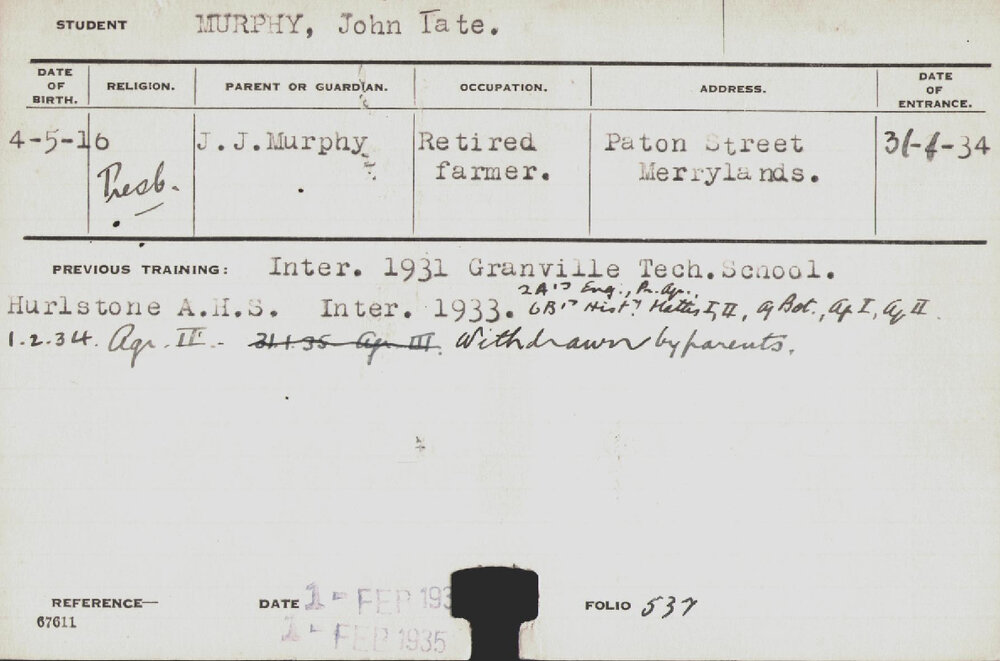 STUDENT MURPHY, John Tate.
DATE OF BIRTH. RELIGION. PARENT OR GUARDIAN. OCCUPATION. ADDRESS. DATE OF ENTRANCE.
4-5-16 J.J.Murphy Retired Paton Street 31-1-34
Presb. farmer. Merrylands.
PREVIOUS TRAINING: Inter. 1931 Granville Tech.School.
2A's Eng., Pr. Agr.,
Hurlstone A.H.S. Inter. 1933. 6B's Hist. Maths I, II, Ag Bot., Ag I, Ag II.
1.2.34. Agr. II - 31.1.35 Agr III. Withdrawn by parents.
REFERENCE— DATE 1 - FEB 193 FOLIO 537
67611 1 - FEB 1935